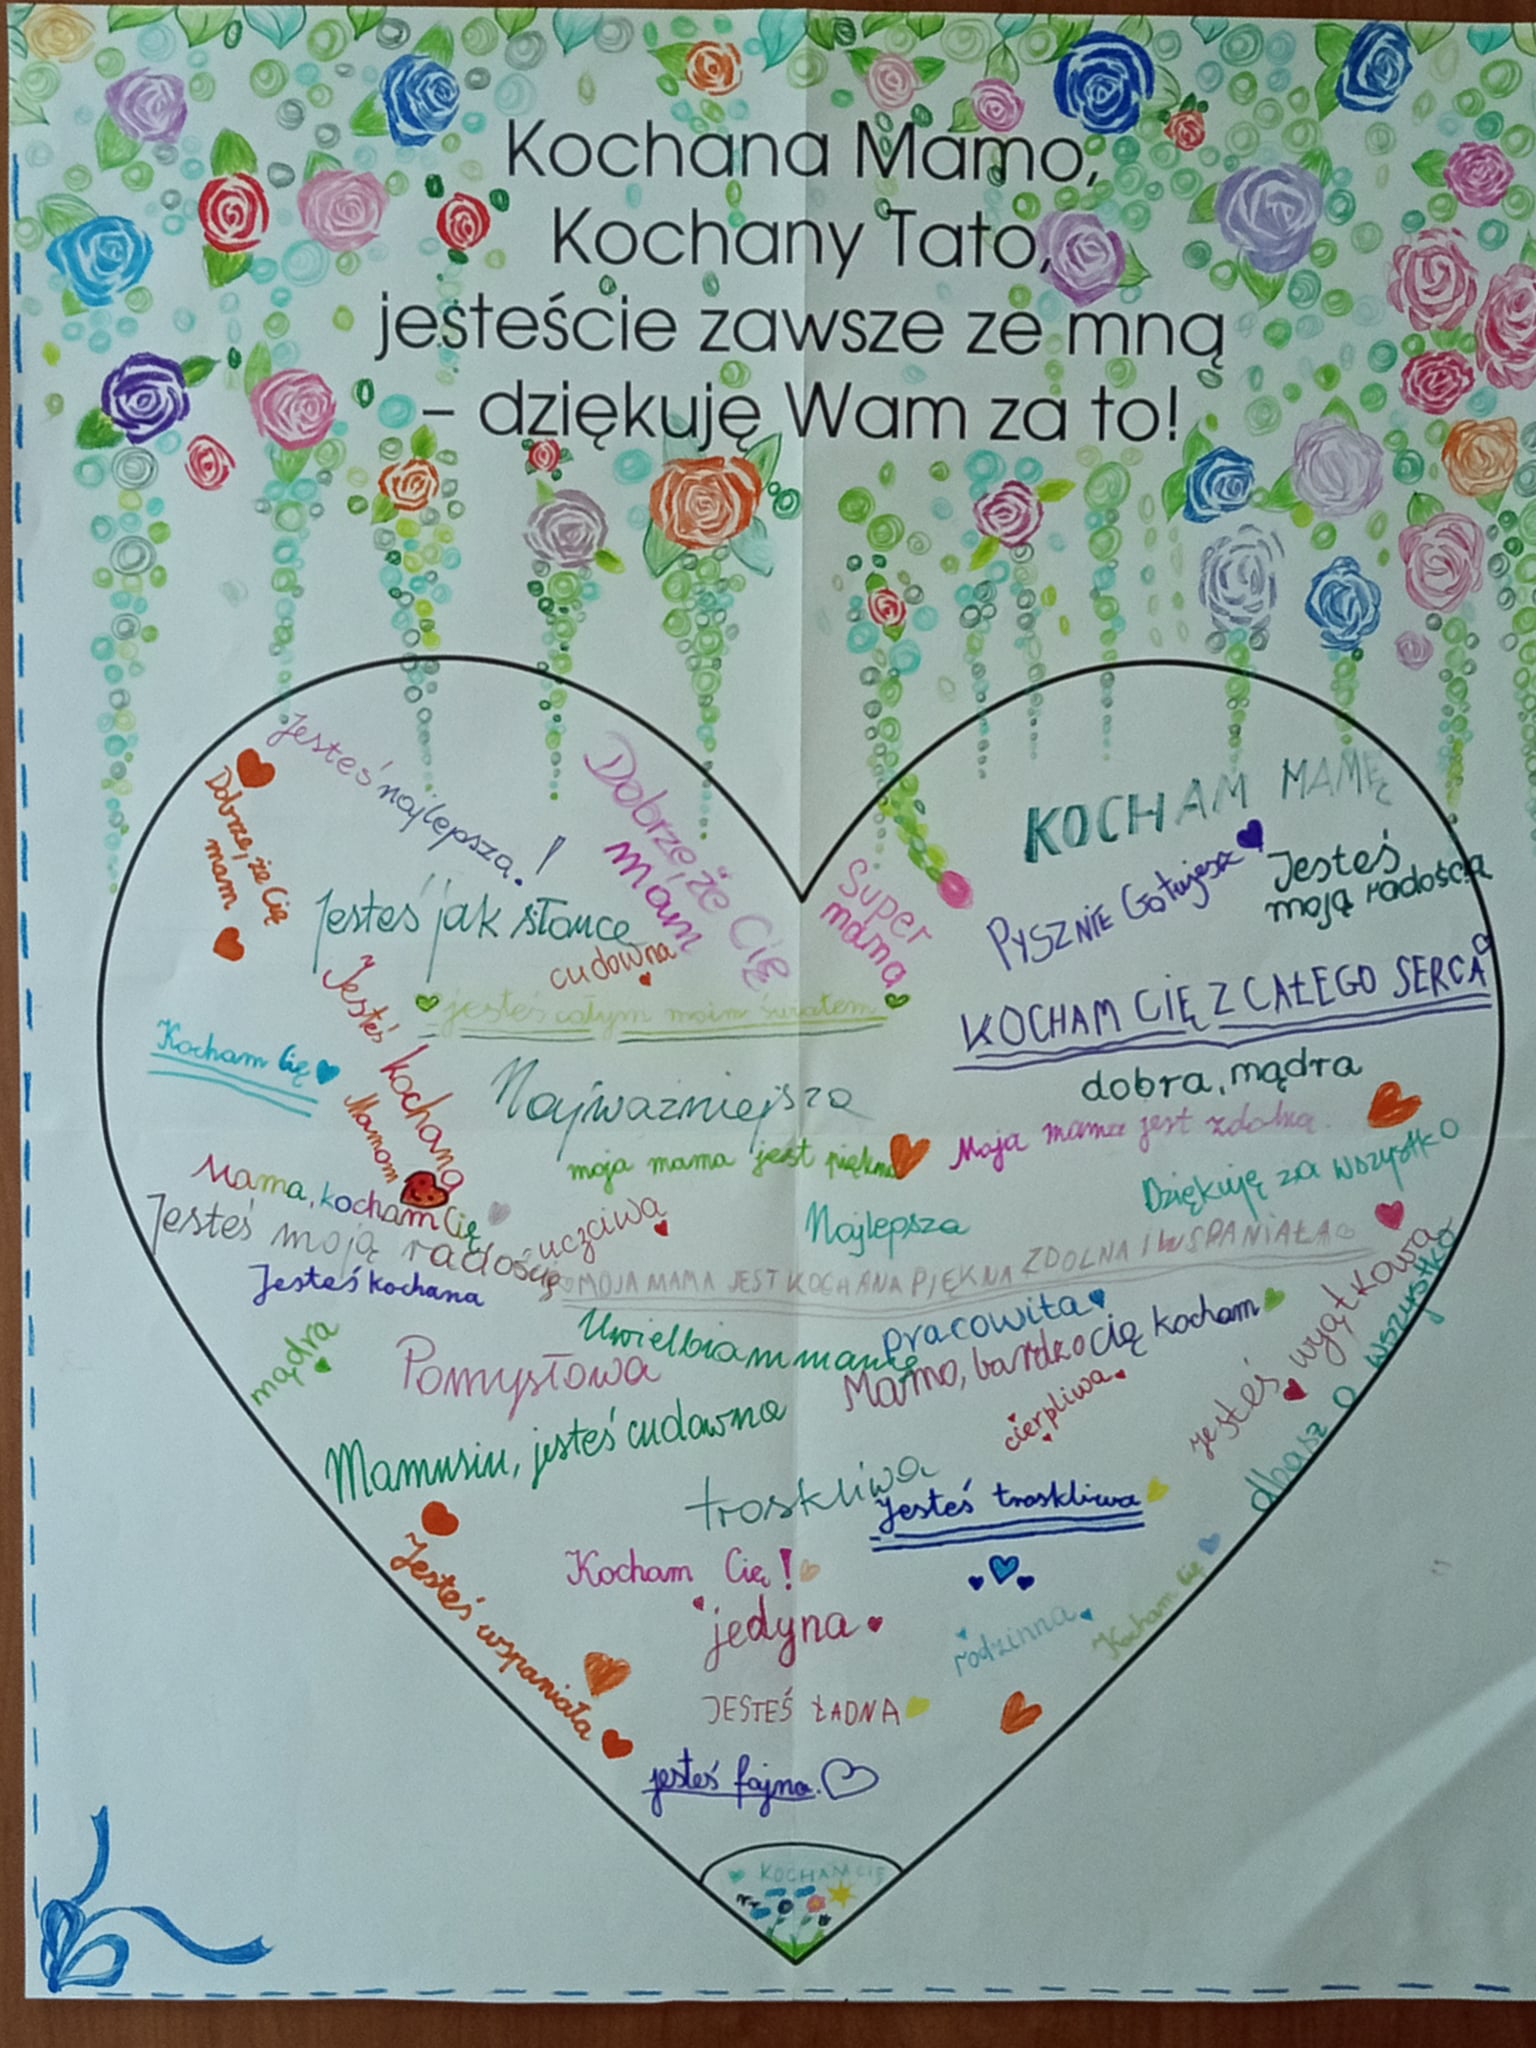 Kochana Mamo,
Kochany Tato,
jesteście zawsze ze mną
– dziękuję Wam za to!
Jesteś najlepsza!
Dobrze, że Cię
mam
Dobrze, że Cię
mam
KOCHAM MAMĘ
Super
mama
PYSZNIE Gotujesz
Jesteś
moją radością
Jesteś jak słońce
cudowna
jesteś całym moim światem
KOCHAM CIĘ Z CAŁEGO SERCA
Jesteś kochana
Kocham Cię
Mamom
Najważniejsza
dobra, mądra
moja mama jest piękna
Moja mama jest zdolna.
Mama, kocham Cię
Dziękuję za wszystko
Jesteś moją radością
uczciwa
Najlepsza
MOJA MAMA JEST KOCHANA PIĘKNA ZDOLNA I WSPANIAŁA
Jesteś kochana
pracowita
Uwielbiam mamę
mądra
Pomysłowa
Mamo, bardzo cię kocham
jesteś wyjątkowa
dbasz o wszystko
cierpliwa
Mamusiu, jesteś cudowna
troskliwa
Jesteś troskliwa
Jesteś wspaniała
Kocham Cię!
jedyna
rodzinna
Kocham Cię
JESTEŚ ŁADNA
jesteś fajna.
KOCHAM CIĘ